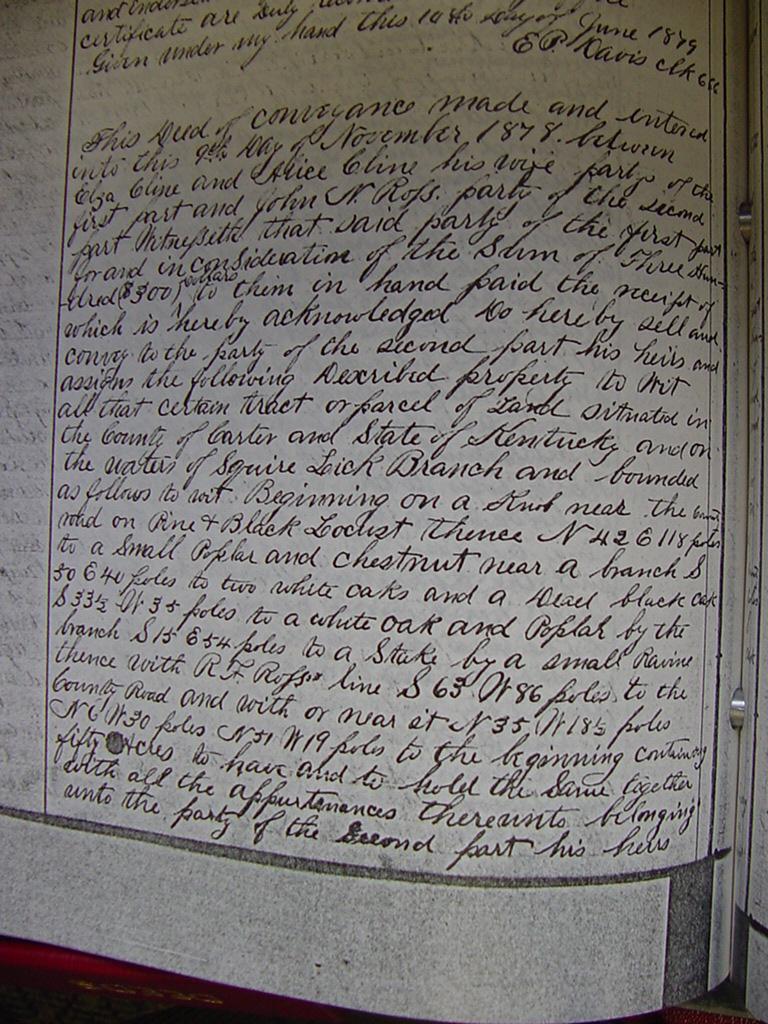 and
certificate are Duly
Given under my hand this 10th Day of June 1879
E P. Davis clk
This Deed of conveyance made and entered
into this 9th Day of November 1878. between
Elza Cline and Alice Cline his wife party of the
first part and John N. Ross. party of the second
part Witnesseth that said party of the first part
for and in consideration of the Sum of Three Hun-
-dred ($300) dollars to them in hand paid the receipt of
which is hereby acknowledged Do hereby sell and
convey to the party of the second part his heirs and
assigns the following Described property to Wit
all that certain tract or parcel of Land situated in
the County of Carter and State of Kentucky and on
the waters of Squire Lick Branch and bounded
as follows to wit. Beginning on a Knob near the
road on Pine & Black Locust thence N 42 E 118 poles
to a Small Poplar and chestnut near a branch S
50 E 40 poles to two white oaks and a Dead black oak
S 33½ W 35 poles to a white oak and Poplar by the
branch S 15 E 54 poles to a Stake by a small Ravine
thence with R. F. Ross line S 63 W 86 poles to the
County Road and with or near it N 35 W 18½ poles
N 6 W 30 poles N 51 W 19 poles to the beginning containing
fifty Acres to have and to hold the Same together
with all the appurtenances thereunto belonging
unto the party of the Second part his heirs